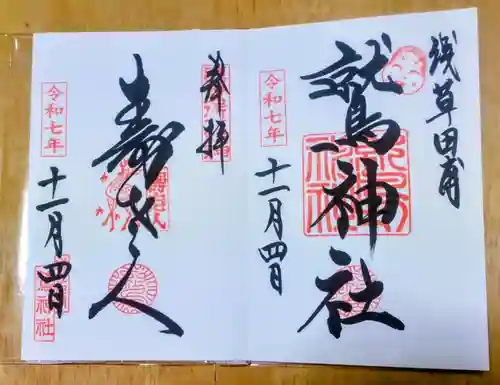 浅草田甫
鷲神社
令和七年
十一月四日
奉拝
寿老人
令和七年
十一月四日